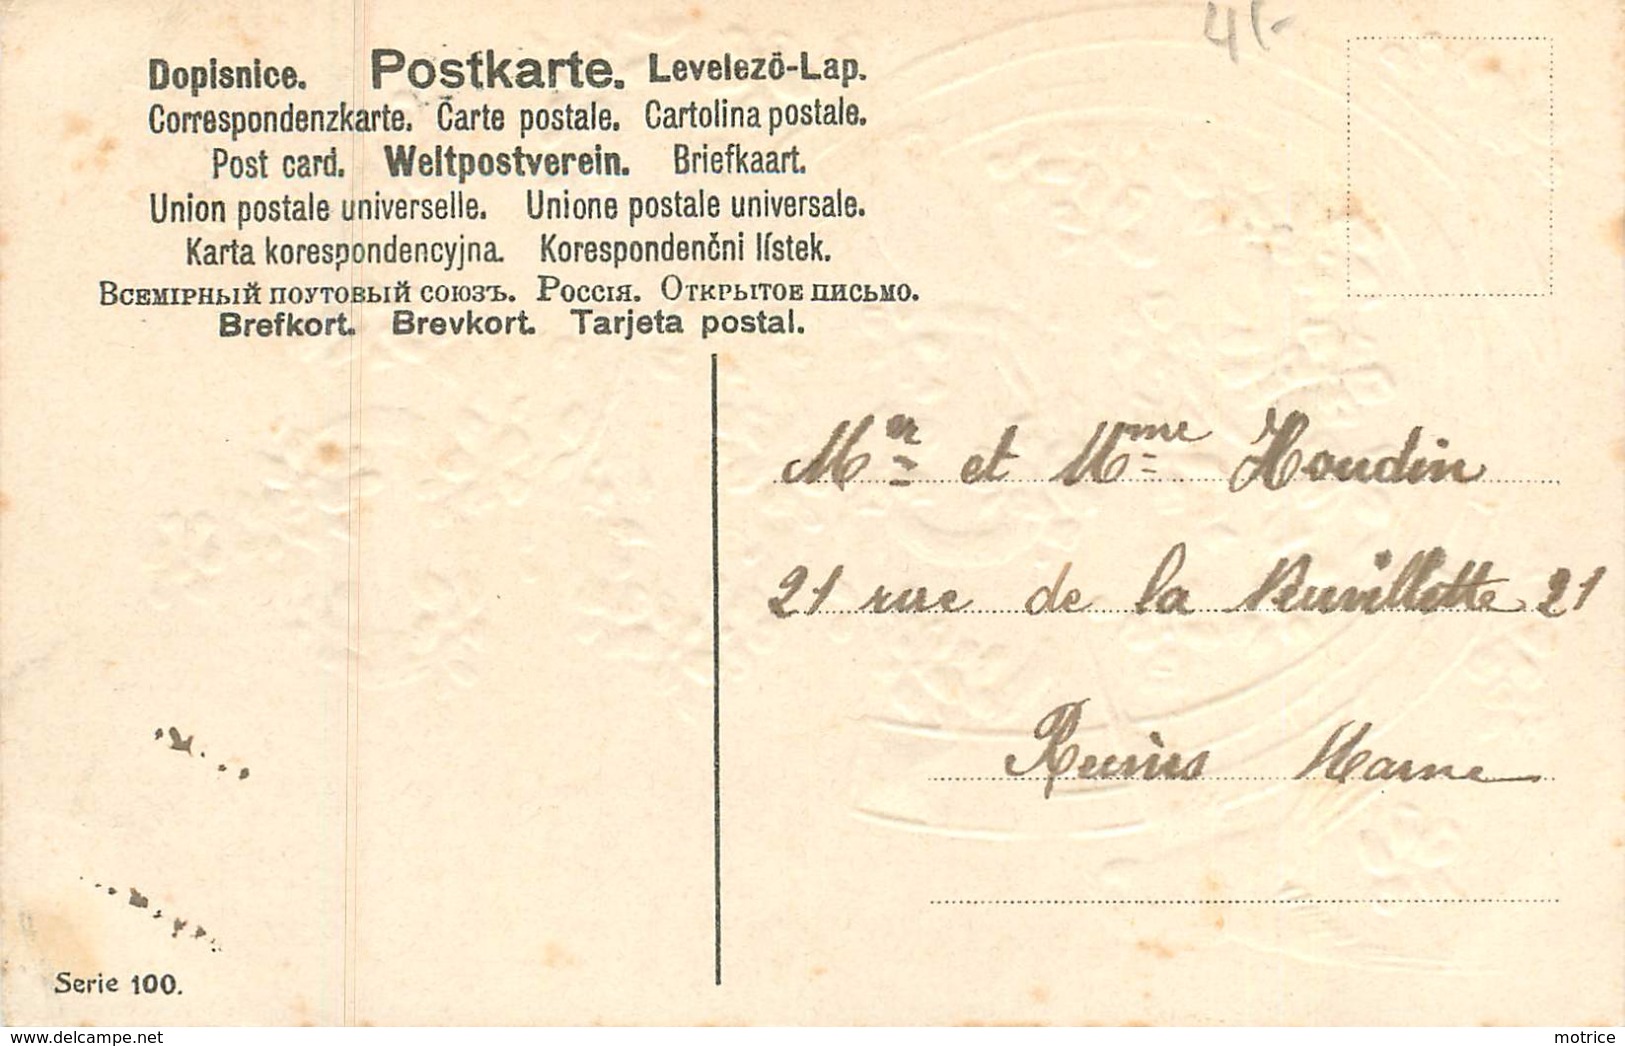 4/-
Dopisnice. Postkarte. Levelező-Lap.
Correspondenzkarte. Carte postale. Cartolina postale.
Post card. Weltpostverein. Briefkaart.
Union postale universelle. Unione postale universale.
Karta korespondencyjna. Korespondenční lístek.
Всемірный поутовый союзъ. Россія. Открытое письмо.
Brefkort. Brevkort. Tarjeta postal.
Mr et Mme Houdin
21 rue de la Buvillotte 21
Reims Marne
Serie 100.
www.delcampe.net
motrice